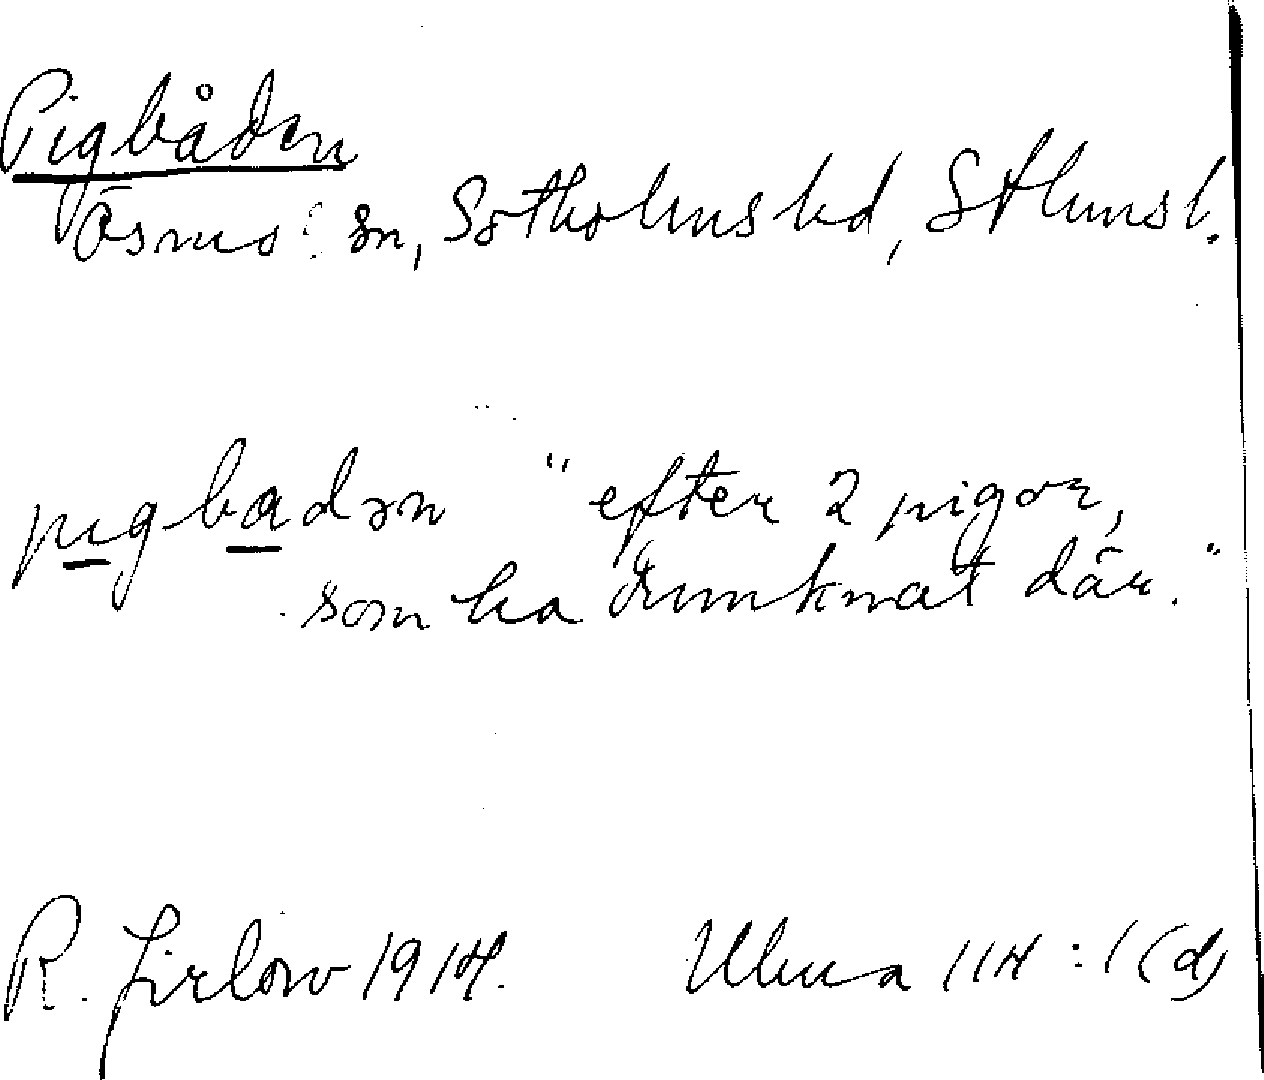 Pigbåden
Ösmo sn, Sotholms hd, Sthlms l.
pıgbadən "efter 2 pigor,
som ha drunknat där."
R. Jirlow 1914. Uluma 114:1(d)